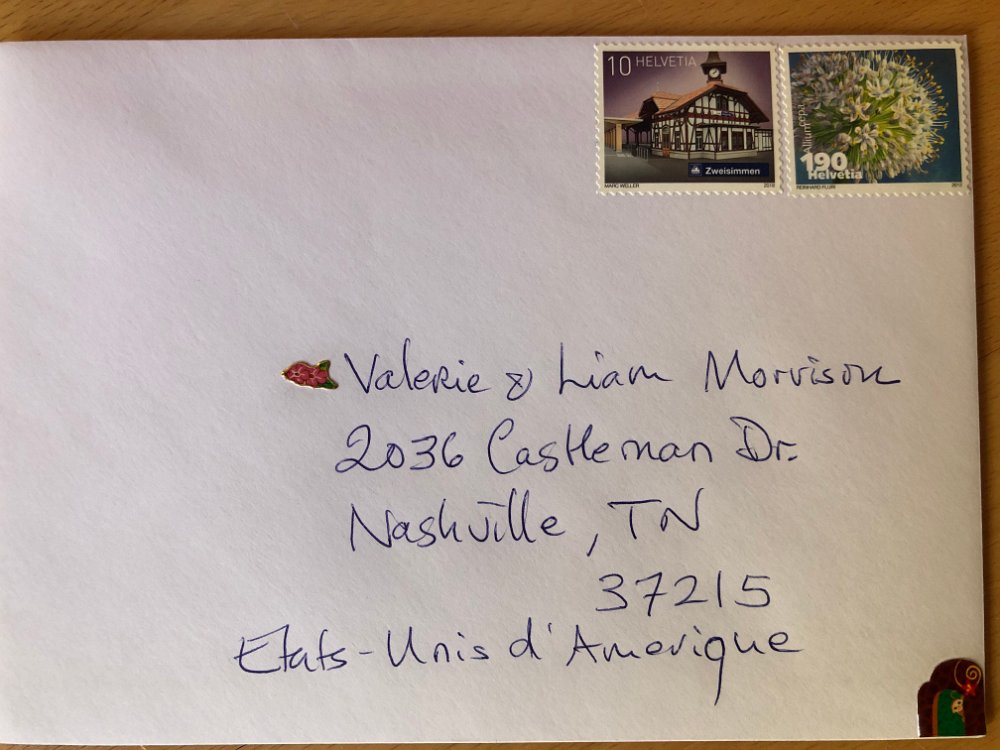 10 HELVETIA
Zweisimmen
MARC WELLER 2018
Allium cepa
190
Helvetia
REINHARD FLURI 2012
Valerie & Liam Morrison
2036 Castleman Dr.
Nashville, TN
37215
Etats-Unis d'Amerique